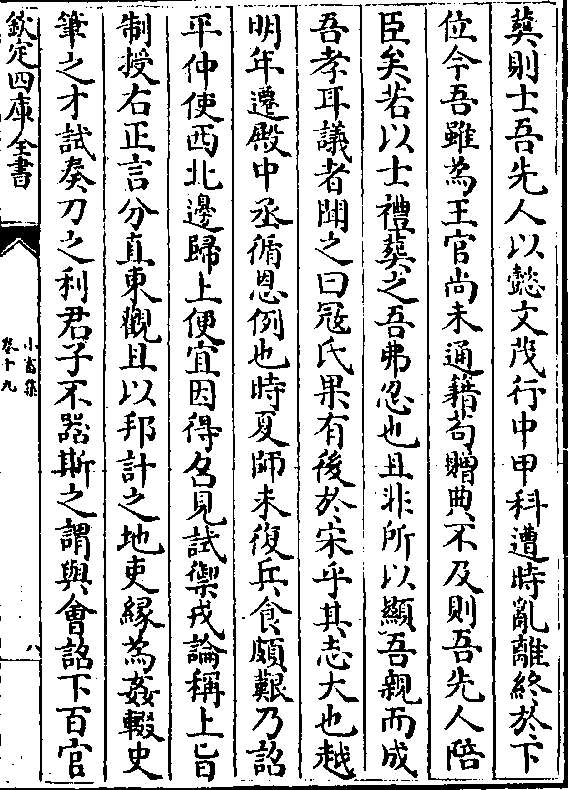 葬則士吾先人以懿文茂行中甲科遭時亂離終於下
位今吾雖為王官尚未通籍茍贈典不及則吾先人陪
臣矣若以士禮葬之吾弗忍也且非所以顯吾親而成
吾孝耳議者聞之曰冦氏果有後於宋乎其志大也越
明年遷殿中丞循恩例也時夏師未復兵食頗艱乃詔
平仲使西北邊歸上便宜因得召見試禦戎論稱上旨
制授右正言分直東觀且以邦計之地吏緣為姦輟史
筆之才試奏刀之利君子不器斯之謂與會詔下百官
欽定四庫全書
小畜集
卷十九
八